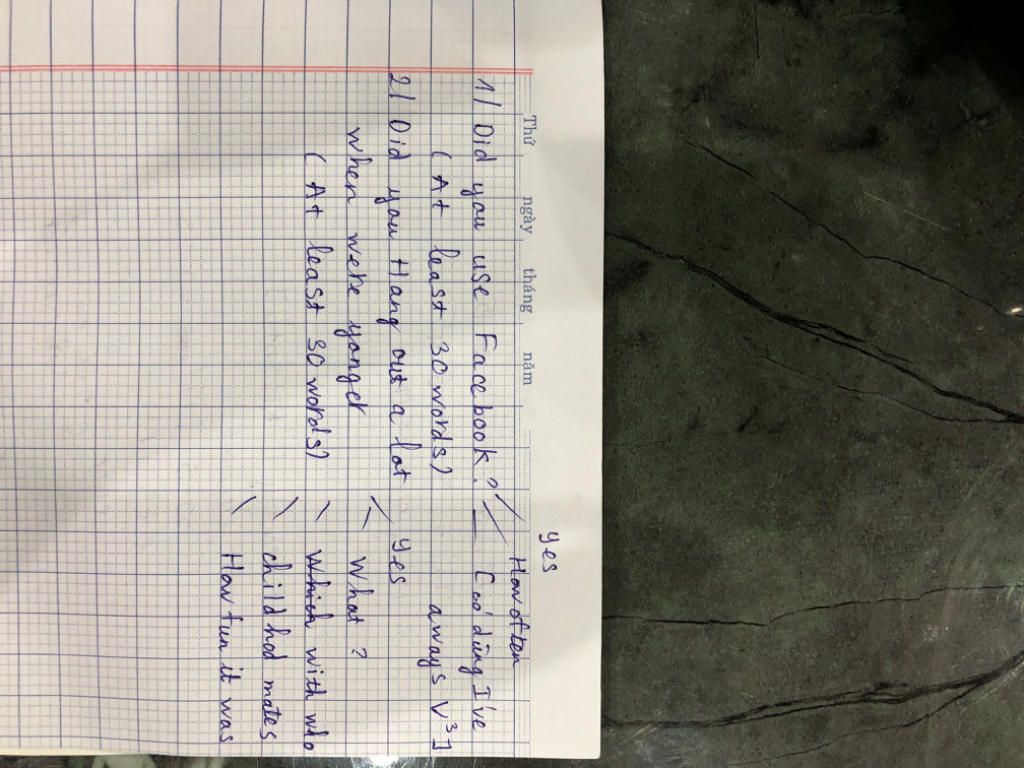 Thứ ngày tháng năm
yes
How often
1/ Did you use Facebook? [ có dùng I've
( At least 30 words) aways V³]
2/ Did you Hang out a lot yes
when were yonger What ?
( At least 30 words) Which with who
child hod mates
How fun it was